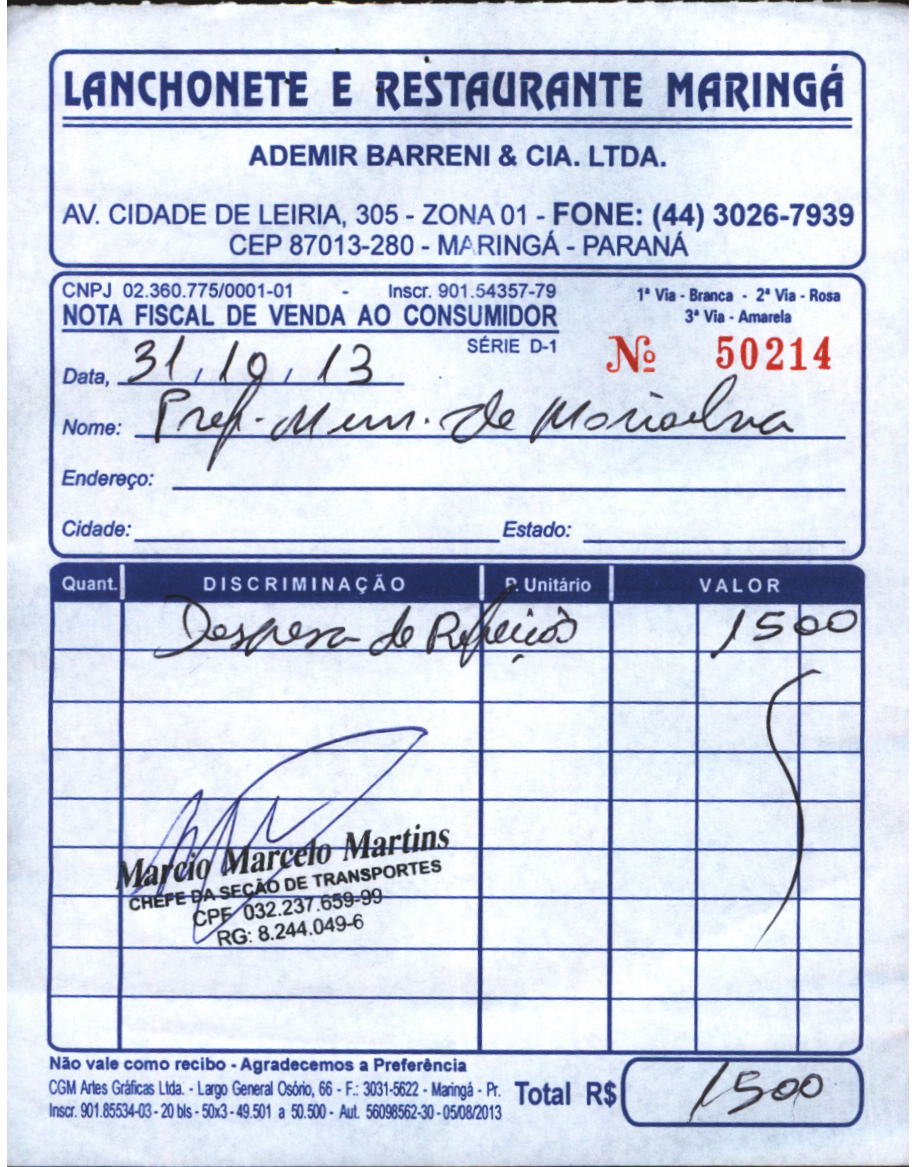 LANCHONETE E RESTAURANTE MARINGÁ
ADEMIR BARRENI & CIA. LTDA.
AV. CIDADE DE LEIRIA, 305 - ZONA 01 - FONE: (44) 3026-7939
CEP 87013-280 - MARINGÁ - PARANÁ
CNPJ 02.360.775/0001-01 - Inscr. 901.54357-79
1ª Via - Branca - 2ª Via - Rosa
3ª Via - Amarela
NOTA FISCAL DE VENDA AO CONSUMIDOR
SÉRIE D-1
Nº 50214
Data, 31, 10, 13
Nome: Pref. Mun. de Marialva
Endereço:
Cidade: Estado:
Quant. DISCRIMINAÇÃO P. Unitário VALOR
Despesa de Refeições 1500
Marcio Marcelo Martins
CHEFE DA SEÇÃO DE TRANSPORTES
CPF 032.237.659-99
RG: 8.244.049-6
Não vale como recibo - Agradecemos a Preferência
CGM Artes Gráficas Ltda. - Largo General Osório, 66 - F.: 3031-5622 - Maringá - Pr.
Inscr. 901.85534-03 - 20 bls - 50x3 - 49.501 a 50.500 - Aut. 56098562-30 - 05/08/2013
Total R$ 1500